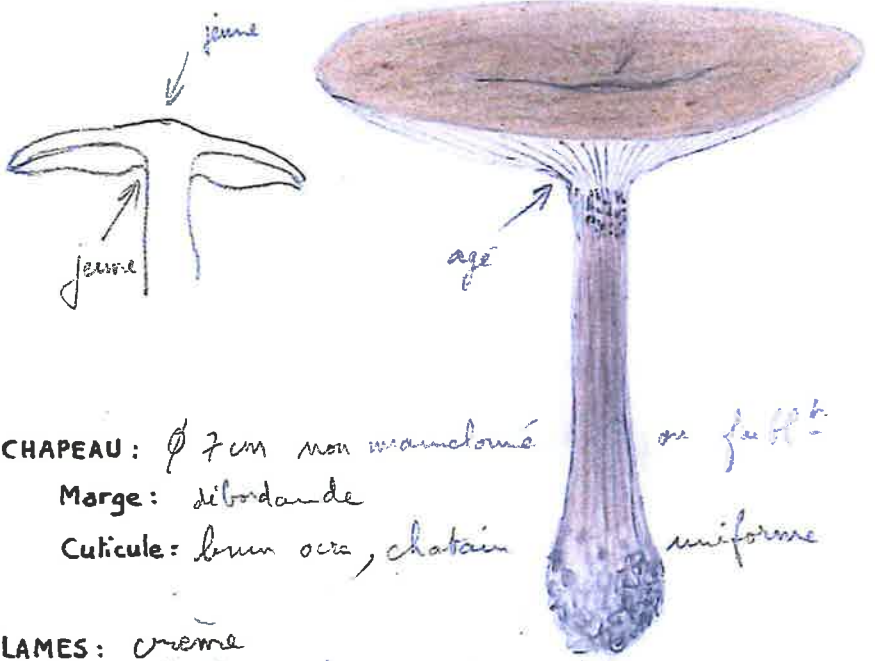 jeune
jeune
agé
CHAPEAU : ϕ 7 cm non mamelonné ou faiblt
Marge : débordande
Cuticule : brun ocre, chatain uniforme
LAMES : crème